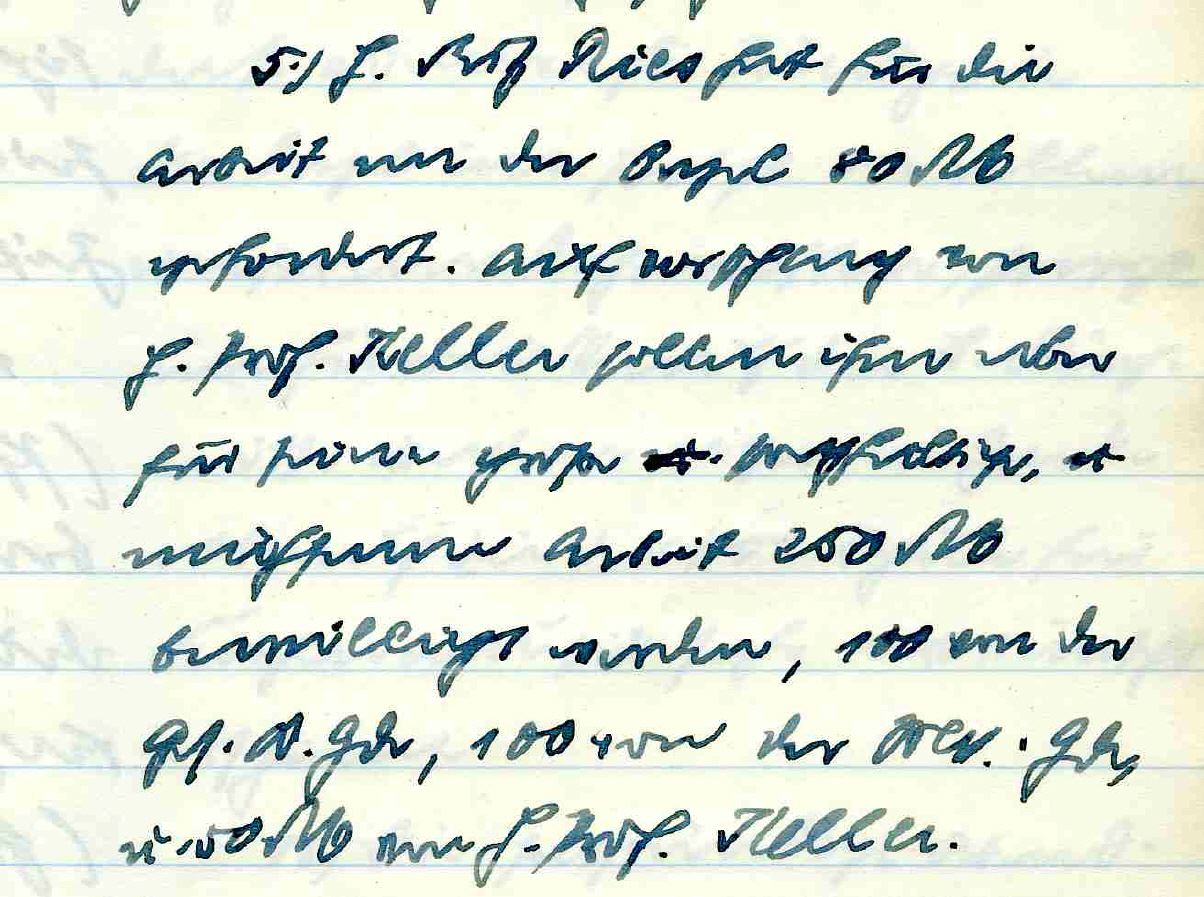 5.) H. Prof Ries hat für die
Arbeit an der Orgel 80 RM
gefordert. Auf Vorschlag von
H. Prof. Keller sollen ihm aber
für seine große sorgfältige,
mühsame Arbeit 250 RM
bewilligt werden, 100 von der
Ges. K. Gde, 100 von der Gde,
u. 50 RM von H. Prof. Keller.